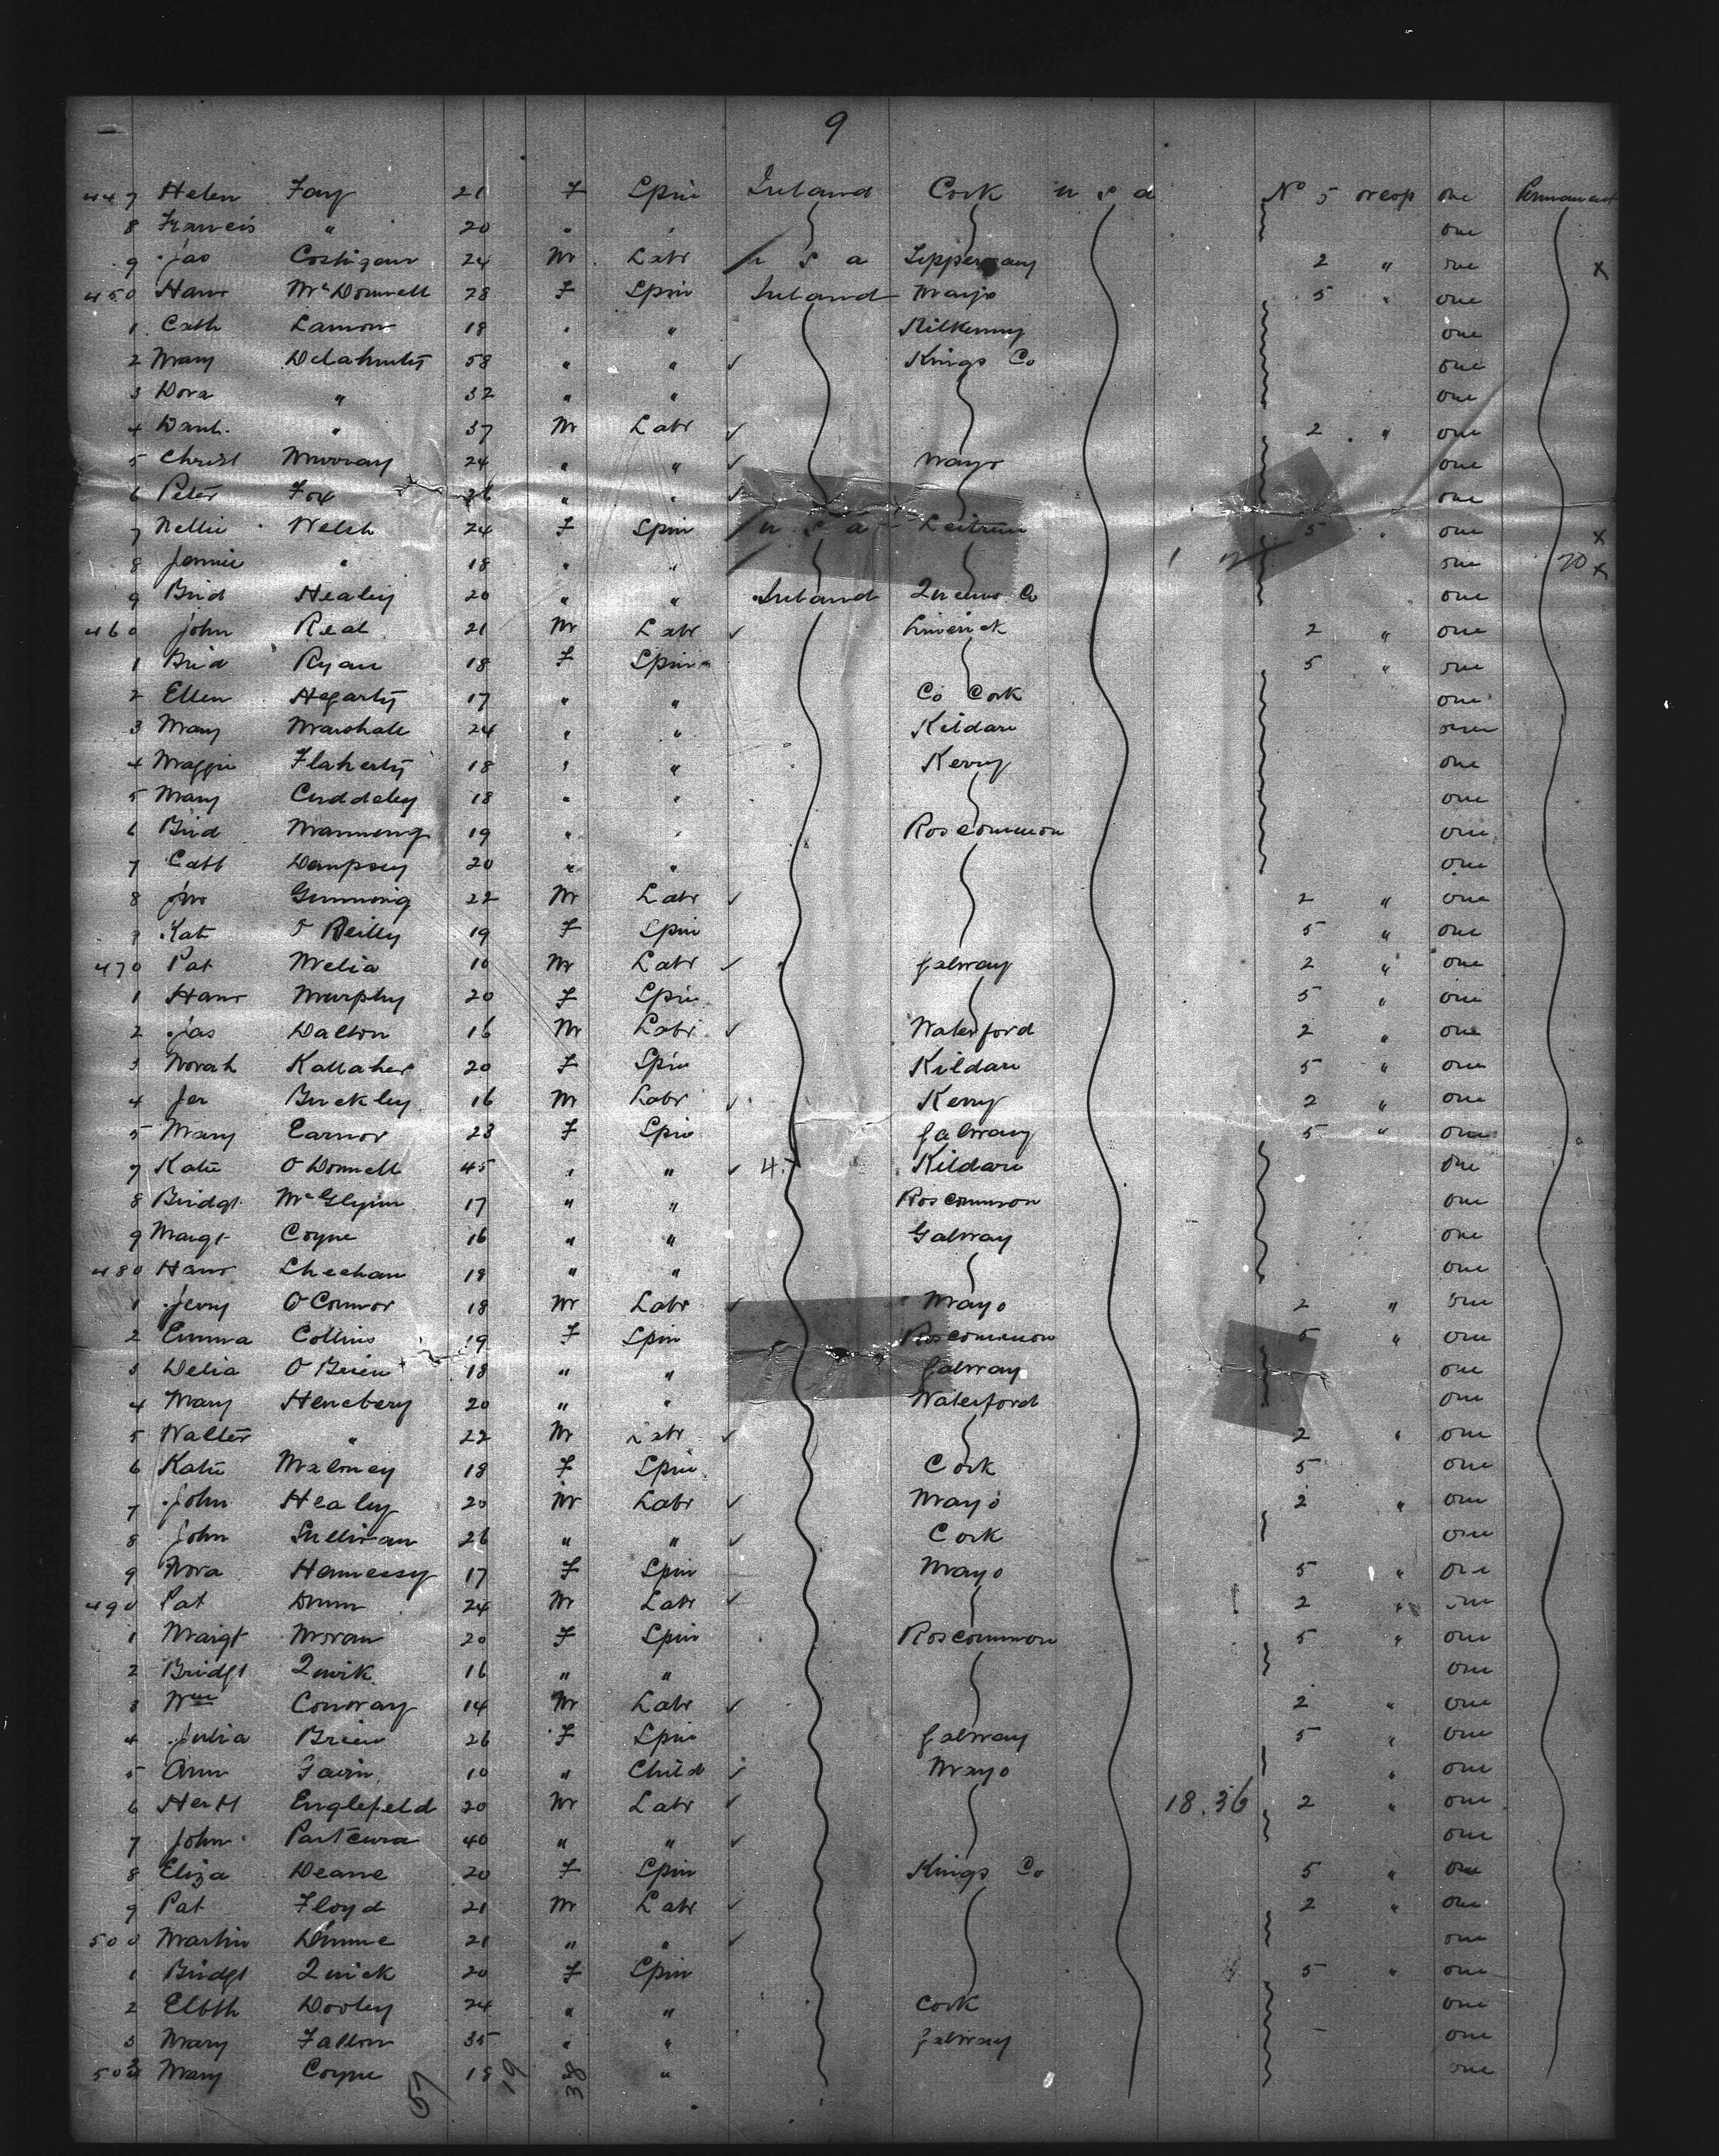 9
447 Helen Fay 21 F Spin Ireland Cork U S A No 5 orcop one Permanent
8 Francis " 20 " " one
9 Jas Costigan 24 M Labr U S A Tipperary 2 " one x
450 Hanr McDonnell 28 F Spin Ireland Mayo 5 " one
1 Cath Lannon 19 " " Kilkenny one
2 Mary Delahunty 58 " " ✓ Kings Co one
3 Dora " 32 " " one
4 Danl. " 37 M Labr ✓ 2 " one
5 Christ Murray 24 " " ✓ Mayo one
6 Peter Fox 26 " " ✓ one
7 Nellie Welsh 24 F Spin U S A Leitrim 5 " one x
8 Jennie " 18 " " 1 one 20 x
9 Brid Healy 20 " " Ireland Queens Co one
460 John Real 21 M Labr ✓ Limerick 2 " one
1 Brid Ryan 18 F Spin 5 " one
2 Ellen Hegarty 17 " " Co Cork one
3 Mary Marshall 24 " " Kildare one
4 Maggie Flaherty 18 " " Kerry one
5 Mary Cuddehy 18 " " one
6 Brid Manning 19 " " Roscommon one
7 Cath Dempsey 20 " " one
8 Jno Gunning 22 M Labr ✓ 2 " one
9 Kat O Reilly 19 F Spin 5 " one
470 Pat Melia 10 M Labr ✓ Galway 2 " one
1 Hanr Murphy 20 F Spin 5 " one
2 Jas Dalton 16 M Labr ✓ Waterford 2 " one
3 Norah Kallaher 20 F Spin Kildare 5 " one
4 Jer Buckley 16 M Labr ✓ Kerry 2 " one
5 Mary Earnor 23 F Spin Galway 5 " one
7 Katie O Donnell 45 " " ✓ 45 Kildare one
8 Bridgt McGlynn 17 " " Roscommon one
9 Margt Coyne 16 " " Galway one
480 Hanr Sheehan 19 " " one
1 Jerry O Connor 18 M Labr ✓ Mayo 2 " one
2 Emma Collins 19 F Spin Roscommon 5 " one
3 Delia O Brien 18 " " Galway one
4 Mary Henebery 20 " " Waterford one
5 Walter " 22 M Labr ✓ 2 " one
6 Katie Maloney 18 F Spin Cork 5 one
7 John Healy 20 M Labr ✓ Mayo 2 " one
8 John Sullivan 26 " " ✓ Cork one
9 Nora Hennessy 17 F Spin Mayo 5 " one
490 Pat Dunn 24 M Labr ✓ 2 " one
1 Margt Moran 20 F Spin Roscommon 5 " one
2 Bridgt Quik 16 " " one
3 Wm Conway 14 M Labr ✓ 2 " one
4 Julia Brien 26 F Spin Galway 5 " one
5 Ann Gavin 10 " Child ✓ Mayo " one
6 Herbt Englefeld 20 M Labr ✓ 18.36 2 " one
7 John 40 " " ✓ one
8 Eliza Deane 20 F Spin Kings Co 5 " one
9 Pat Floyd 21 M Labr ✓ 2 " one
500 Martin Dunne 21 " " ✓ one
1 Bridgt Quick 20 F Spin 5 " one
2 Elbth Dooley 24 " " Cork one
3 Mary Fallon 35 " " Galway one
504 Mary Coyne 18 " " one
57 19 38